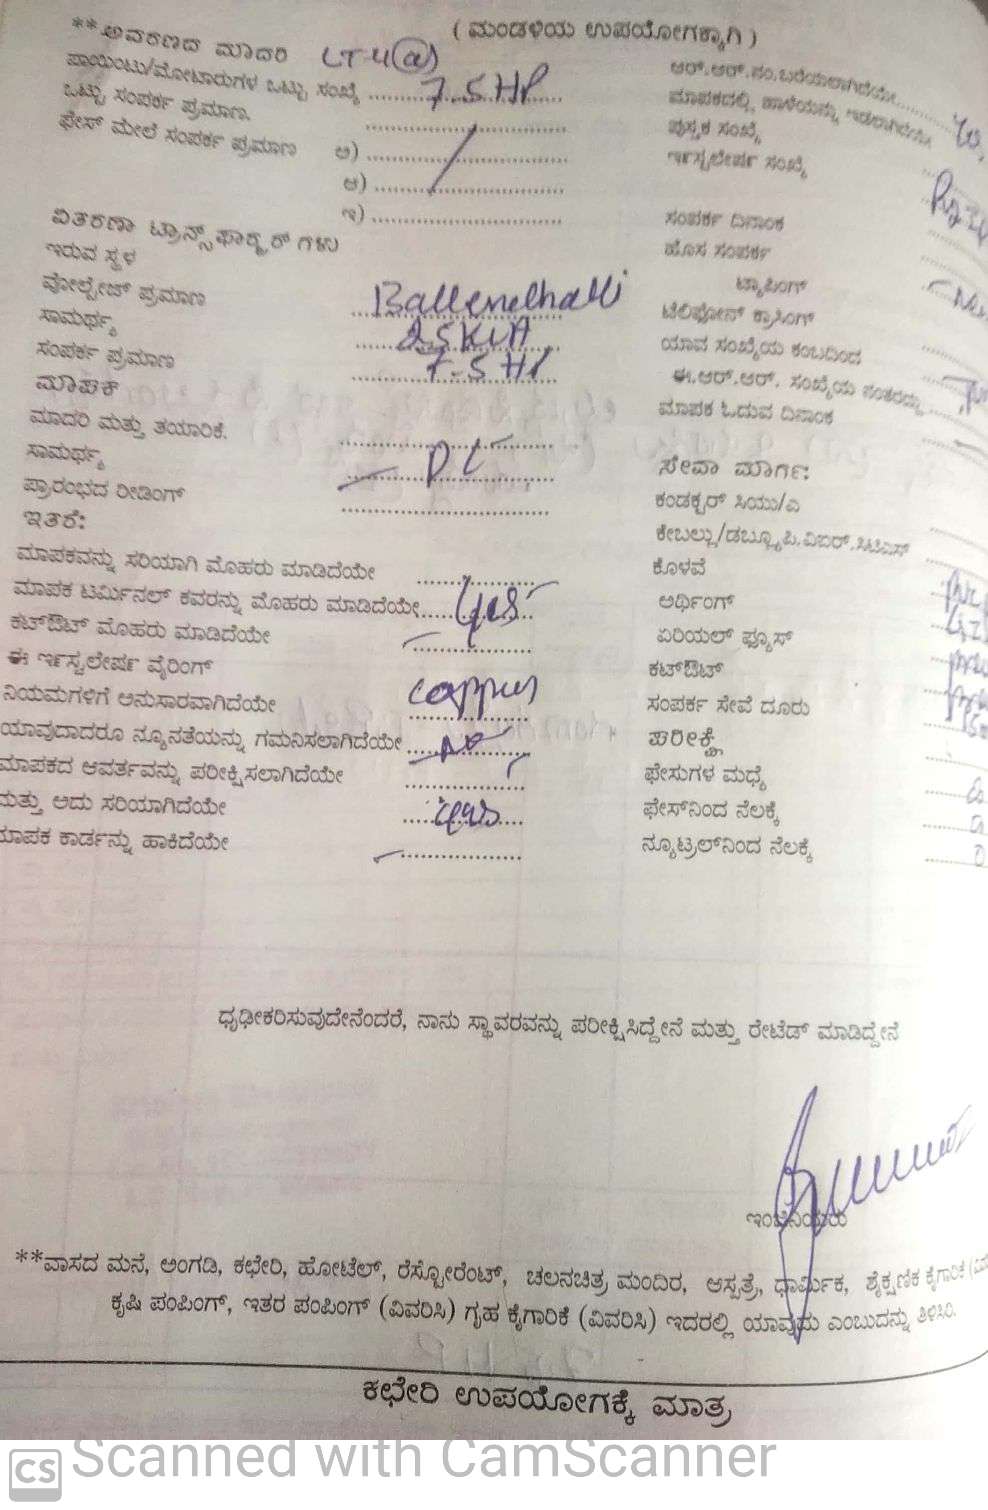 ( ಮಂಡಳಿಯ ಉಪಯೋಗಕ್ಕಾಗಿ )
**ಆವರಣದ ಮಾದರಿ LT-4(a)
ಪಾಯಿಂಟು/ಮೋಟಾರುಗಳ ಒಟ್ಟು ಸಂಖ್ಯೆ 7.5 HP
ಒಟ್ಟು ಸಂಪರ್ಕ ಪ್ರಮಾಣ.
ಫೇಸ್ ಮೇಲೆ ಸಂಪರ್ಕ ಪ್ರಮಾಣ ಅ)
ಆ)
ಇ)
ವಿತರಣಾ ಟ್ರಾನ್ಸ್‌ಫಾರ್ಮರ್‌ಗಳು
ಇರುವ ಸ್ಥಳ
ವೋಲ್ಟೇಜ್ ಪ್ರಮಾಣ Ballenelhalli
ಸಾಮರ್ಥ್ಯ 25KVA
ಸಂಪರ್ಕ ಪ್ರಮಾಣ 7.5 HP
ಮಾಪಕ
ಮಾದರಿ ಮತ್ತು ತಯಾರಿಕೆ.
ಸಾಮರ್ಥ್ಯ DC
ಪ್ರಾರಂಭದ ರೀಡಿಂಗ್
ಇತರೆ:
ಮಾಪಕವನ್ನು ಸರಿಯಾಗಿ ಮೊಹರು ಮಾಡಿದೆಯೇ
ಮಾಪಕ ಟರ್ಮಿನಲ್ ಕವರನ್ನು ಮೊಹರು ಮಾಡಿದೆಯೇ Yes
ಕಟ್‌ಔಟ್ ಮೊಹರು ಮಾಡಿದೆಯೇ
ಈ ಇನ್ಸ್ಟಲೇಶನ ವೈರಿಂಗ್
ನಿಯಮಗಳಿಗೆ ಅನುಸಾರವಾಗಿದೆಯೇ
ಯಾವುದಾದರೂ ನ್ಯೂನತೆಯನ್ನು ಗಮನಿಸಲಾಗಿದೆಯೇ NO
ಮಾಪಕದ ಆವರ್ತವನ್ನು ಪರೀಕ್ಷಿಸಲಾಗಿದೆಯೇ
ಮತ್ತು ಅದು ಸರಿಯಾಗಿದೆಯೇ yes
ಮಾಪಕ ಕಾರ್ಡನ್ನು ಹಾಕಿದೆಯೇ
ಆರ್.ಆರ್.ನಂ.ಬರೆಯಲಾಗಿದೆಯೇ
ಮಾಪಕದಲ್ಲಿ, ಹಾಳೆಯನ್ನು ಇಡಲಾಗಿದೆಯೇ
ಪುಸ್ತಕ ಸಂಖ್ಯೆ
ಸಂಖ್ಯೆ
ಸಂಪರ್ಕ ದಿನಾಂಕ
ಹೊಸ ಸಂಪರ್ಕ
ಟ್ಯಾಪಿಂಗ್
ಟೆಲಿಫೋನ್ ಕ್ರಾಸಿಂಗ್
ಯಾವ ಸಂಖ್ಯೆಯ ಕಂಬದಿಂದ
ಈ.ಆರ್.ಆರ್. ಸಂಖ್ಯೆಯ ನಂತರದ್ದು
ಮಾಪಕ ಓದುವ ದಿನಾಂಕ
ಸೇವಾ ಮಾರ್ಗ:
ಕಂಡಕ್ಟರ್ ಸಿಯು/ಎ
ಕೊಳವೆ
ಅರ್ಥಿಂಗ್
ಏರಿಯಲ್ ಫ್ಯೂಸ್
ಕಟ್‌ಔಟ್
ಸಂಪರ್ಕ ಸೇವೆ ದೂರು
ಪರೀಕ್ಷೆ
ಫೇಸುಗಳ ಮಧ್ಯೆ
ಫೇಸ್‌ನಿಂದ ನೆಲಕ್ಕೆ
ನ್ಯೂಟ್ರಲ್‌ನಿಂದ ನೆಲಕ್ಕೆ
ಧೃಢೀಕರಿಸುವುದೇನೆಂದರೆ, ನಾನು ಸ್ಥಾವರವನ್ನು ಪರೀಕ್ಷಿಸಿದ್ದೇನೆ ಮತ್ತು ರೇಟೆಡ್ ಮಾಡಿದ್ದೇನೆ
ಇಂಜಿನಿಯರು
**ವಾಸದ ಮನೆ, ಅಂಗಡಿ, ಕಛೇರಿ, ಹೋಟೆಲ್, ರೆಸ್ಟೋರೆಂಟ್, ಚಲನಚಿತ್ರ ಮಂದಿರ, ಆಸ್ಪತ್ರೆ, ಧಾರ್ಮಿಕ, ಶೈಕ್ಷಣಿಕ ಕೈಗಾರಿಕೆ
ಕೃಷಿ ಪಂಪಿಂಗ್, ಇತರ ಪಂಪಿಂಗ್ (ವಿವರಿಸಿ) ಗೃಹ ಕೈಗಾರಿಕೆ (ವಿವರಿಸಿ) ಇದರಲ್ಲಿ ಯಾವುದು ಎಂಬುದನ್ನು ತಿಳಿಸಿರಿ.
ಕಛೇರಿ ಉಪಯೋಗಕ್ಕೆ ಮಾತ್ರ
CS Scanned with CamScanner